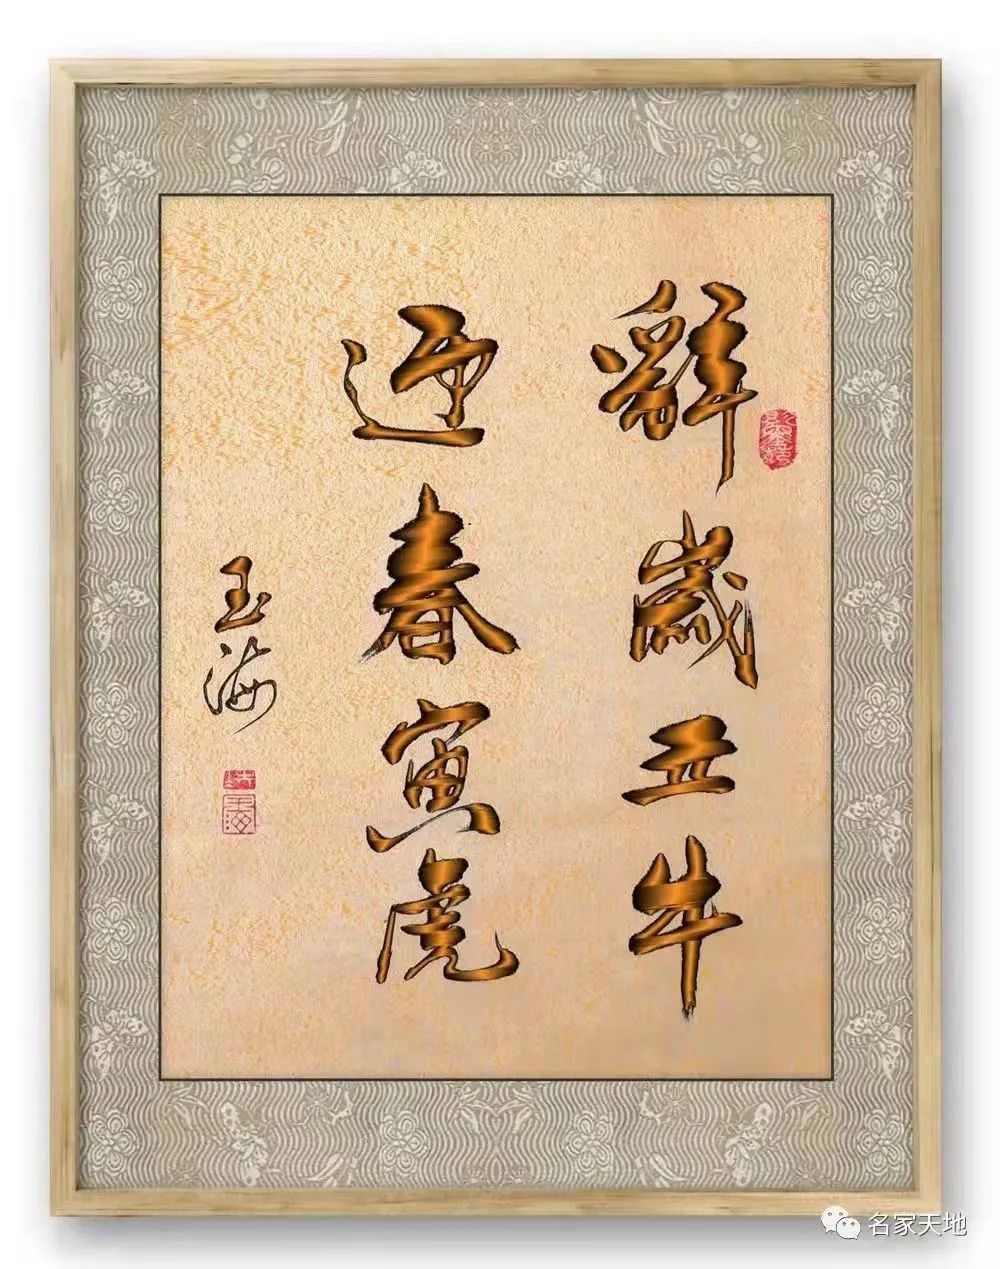 辭歲丑牛
迎春寅虎
玉海
名家天地